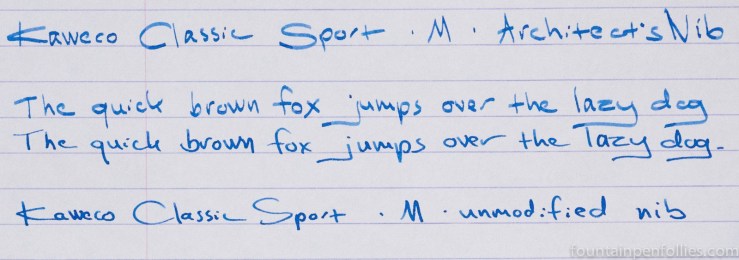 Kaweco Classic Sport · M · Architect's Nib
The quick brown fox jumps over the lazy dog
The quick brown fox jumps over the lazy dog.
Kaweco Classic Sport · M · unmodified nib
fountainpenfollies.com